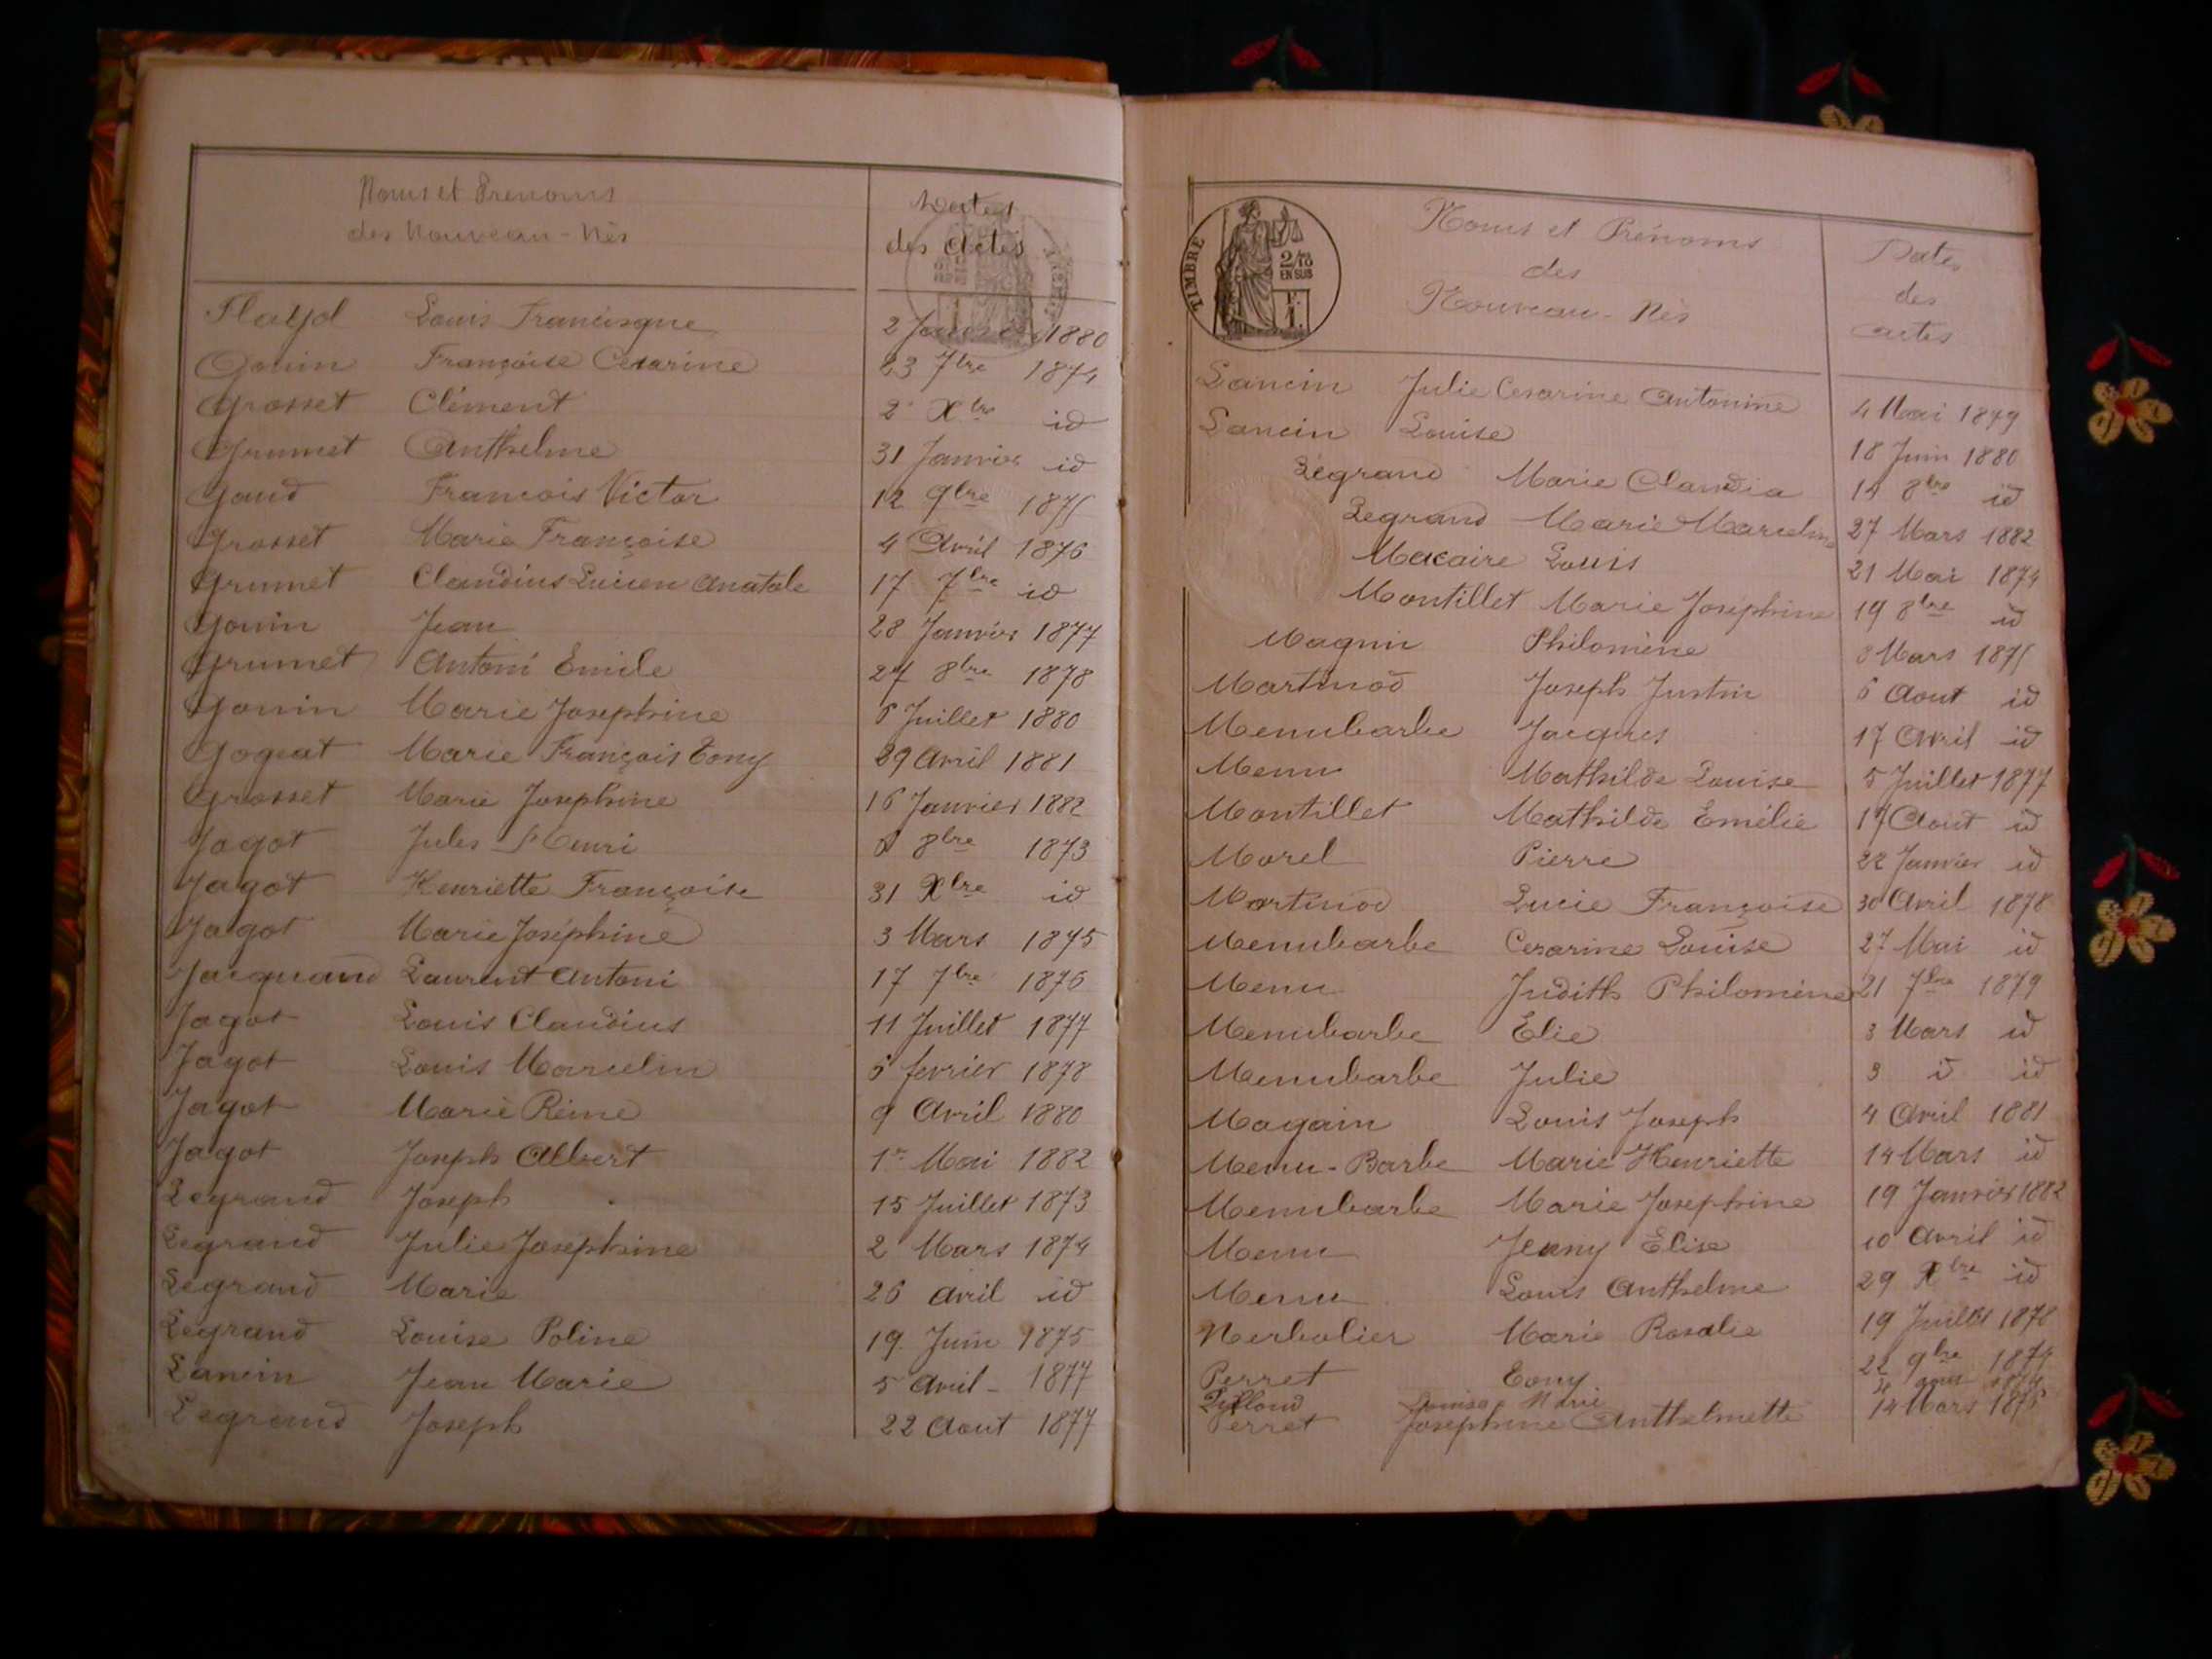 Noms et Prenoms
des Nouveau-Nés
Dates
des Actes
Flayol Louis Francisque 2 Janvier 1880
Gouin Françoise Cesarine 23 7bre 1874
Grosset Clément 2 Xbre id
Grumet Anthelme 31 Janvier id
Gaud Francois Victor 12 9bre 1875
Grosset Marie Françoise 4 Avril 1876
Grumet Claudius Lucien Anatole 17 7bre id
Gouin Jean 28 Janvier 1877
Grumet Antoni Emile 27 8bre 1878
Gouin Marie Josephine 6 Juillet 1880
Gogeat Marie François Tony 29 Avril 1881
Grosset Marie Josephine 16 Janvier 1882
Jagot Jules Henri 8bre 1873
Jagot Henriette Françoise 31 Xbre id
Jagot Marie Joséphine 3 Mars 1875
Jacquand Laurent Antoni 17 7bre 1876
Jagot Louis Claudius 11 Juillet 1877
Jagot Louis Marcelin 6 fevrier 1878
Jagot Marie Reine 9 Avril 1880
Jagot Joseph Albert 1er Mai 1882
Legrand Joseph 15 Juillet 1873
Legrand Julie Josephine 2 Mars 1874
Legrand Marie 26 avril id
Legrand Louise Poline 19 Juin 1875
Lancin Jean Marie 5 Avril - 1877
Legrand Joseph 22 Aout 1877
TIMBRE
2/10
EN SUS
1 F.
Noms et Prénoms
des
Nouveau-Nés
Dates
des
actes
Lancin Julie Cesarine Antonine 4 Mai 1879
Lancin Louise 18 Juin 1880
Legrand Marie Claudia 14 8bre id
Legrand Marie Marceline 27 Mars 1882
Macaire Louis 21 Mai 1874
Montillet Marie Joséphine 19 8bre id
Magnin Philomène 8 Mars 1875
Martinod Joseph Justin 6 Aout id
Menubarbe Jacques 17 Avril id
Menu Mathilde Louise 5 Juillet 1877
Montillet Mathilde Emélie 17 Aout id
Morel Pierre 22 Janvier id
Martinod Lucie Françoise 30 Avril 1878
Menubarbe Cesarine Louise 27 Mai id
Menu Judith Philomène 21 7bre 1879
Menubarbe Elie 3 Mars id
Menubarbe Julie 3 id id
Magnin Louis Joseph 4 Avril 1881
Menu-Barbe Marie Henriette 14 Mars id
Menubarbe Marie Josephine 19 Janvier 1882
Menu Jenny Elise 10 Avril id
Menu Louis Anthelme 29 Xbre id
Nerbolier Marie Rosalie 19 Juillet 1878
Perret Tony 22 9bre 1874
Louise Marie
Perret Josephine Anthelmette 14 Mars 1875